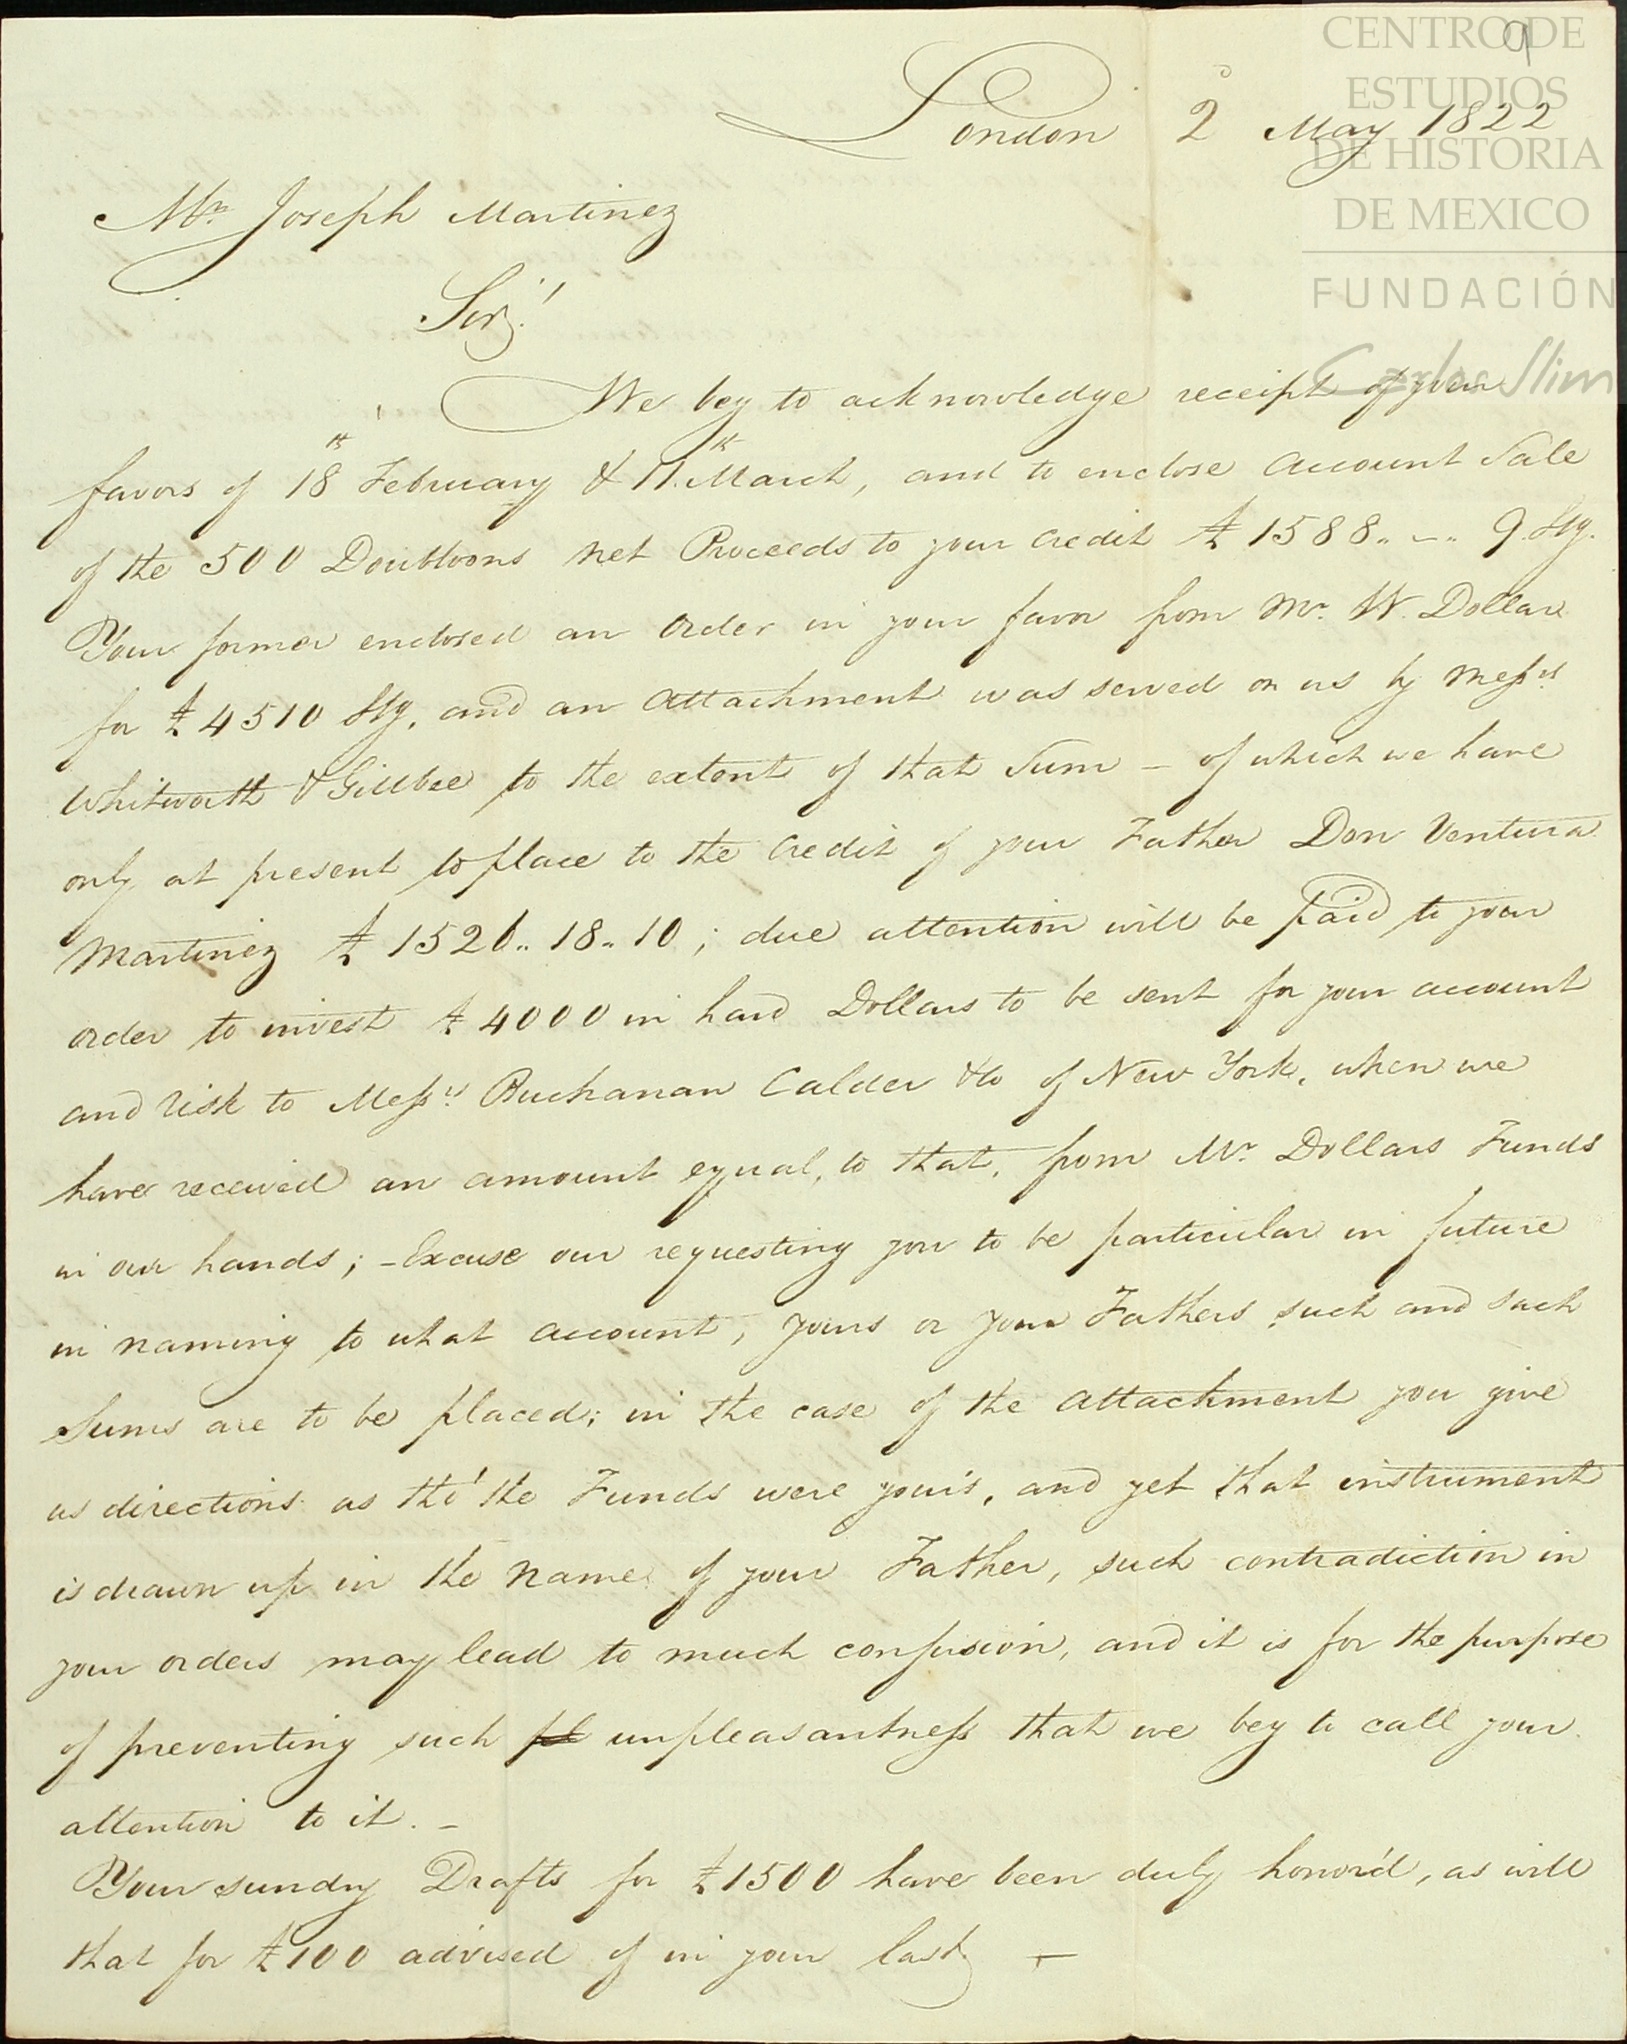 9
CENTRO DE
ESTUDIOS
DE HISTORIA
DE MEXICO
FUNDACIÓN
Carlos Slim
London 2 May 1822
Mr. Joseph Martinez
Sir!
We beg to acknowledge receipt of your
favors of 18th February & 11th March, and to enclose Account Sale
of the 500 Doubloons net Proceeds to your Credit £ 1588.. -.. 9. Stg.
Your former enclosed an Order in your favor from Mr. W. Dollar
for £ 4510 Stg, and an Attachment was served on us by Messrs
Whitworth & Gillbee to the extent of that Sum – of which we have
only at present to place to the Credit of your Father Don Ventura
Martinez £ .. 18.. 10 ; due attention will be paid to your
order to invest £ 4000 in hard Dollars to be sent for your account
and risk to Messrs Buchanan Calder & Co of New York, when we
have received an amount equal, to that, from Mr. Dollars Funds
in our hands ; – Excuse our requesting you to be particular in future
in naming to what account, yours or your Fathers such and such
Sums are to be placed; in the case of the attachment you give
us directions as tho' the Funds were your's, and yet that instrument
is drawn up in the name of your Father, such contradiction in
your orders may lead to much confusion, and it is for the purpose
of preventing such pl unpleasantness that we beg to call your
attention to it. –
Your sundry Drafts for £ 1500 have been duly honor'd, as will
that for £ 100 advised of in your last –